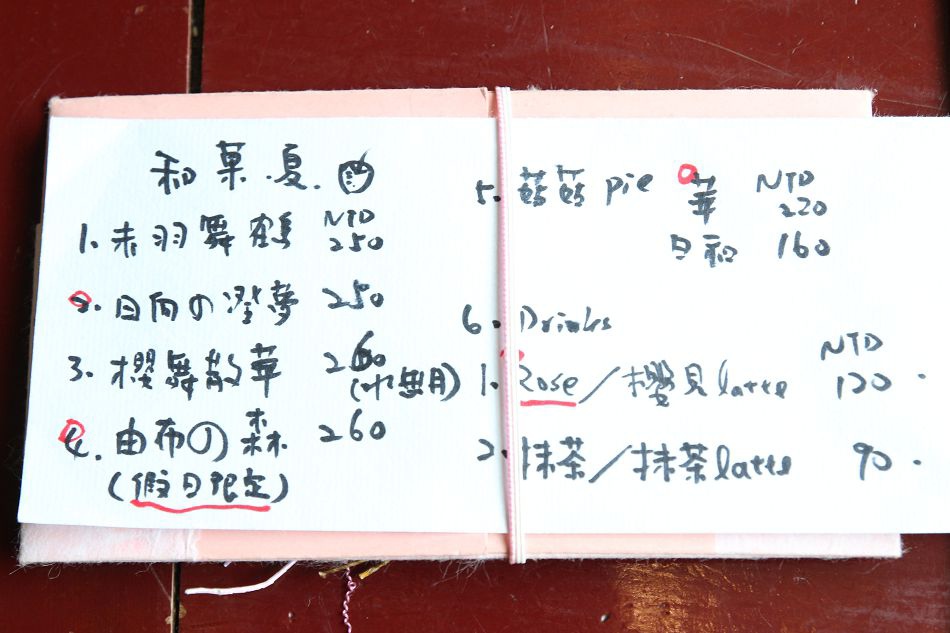 和菓.夏.
NTD
1.赤羽舞鶴 250
2.日向の澄夢 250
3.櫻舞散華 260
(水無月)
4.由布の森 260
(假日限定)
5.蘋蘋pie 華 NTD 220
日和 160
6.Drinks
NTD
1.Rose/櫻見latte 120.
2.抹茶/抹茶latte 90.